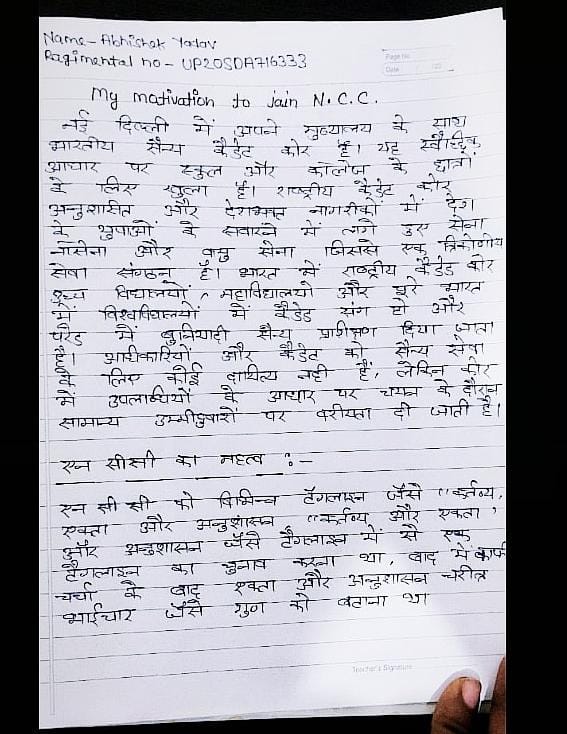 Name- Abhishek Yadav
Ragimental no - UP20SDA716333
Page No.
Date
My motivation to jain N.C.C.
नई दिल्ली में अपने मुख्यालय के साथ
भारतीय सैन्य कैडेट कोर है। यह स्वैच्छिक
आधार पर स्कुल और कॉलेज के छात्रों
के लिए खुला है। राष्ट्रीय कैडेट कोर
अनुशासित और देशभक्त नागरीकों में देश
के युवाओं के सवारने में लगे हुए सेना
नौसेना और वायु सेना जिससे एक त्रिकोणीय
सेवा संगठन है। भारत में राष्ट्रीय कैडेड कोर
उच्च विद्यालयों, महाविद्यालयो और पुरे भारत
में विश्वविद्यालयों में कैडेड संग हो और
परेड में बुनियादी सैन्य प्रशिक्षण दिया जाता
है। अधीकारियों और कैडेट को सैन्य सेवा
के लिए कोई दायित्य नही हैं, लेकिन कोर
में उपलब्धियों के आधार पर चयन के दौरान
सामान्य उम्मीदुवारों पर वरीयता दी जाती है।
एन सीसी का महत्व :-
एन सी सी को विभिन्न टैगलाइन जैसे "कर्तव्य,
एकता और अनुशासन "कर्तव्य और एकता'
और अनुशासन जैसे टैगलाइन में से एक
टैगलाइन का चुनाव करना था, बाद में काफी
चर्चा के बाद एकता और अनुशासन चरीत्र
भाईचार जैसे गुण को बताना था
Teacher's Signature